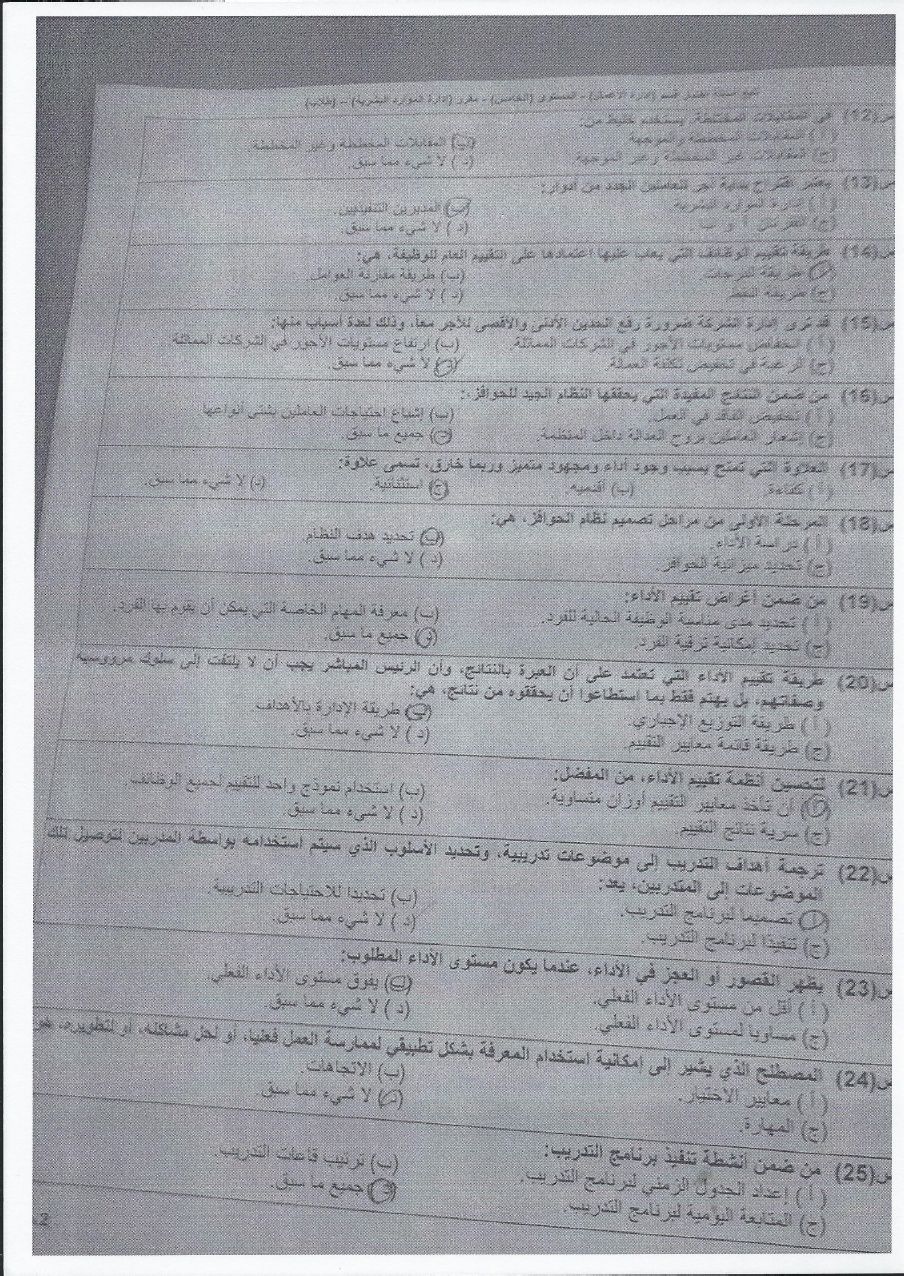 نموذج أسئلة اختبار قسم (إدارة الأعمال) – المستوى (الخامس) – مقرر (إدارة الموارد البشرية) – (طلاب)
س(12) في المقابلات المختلطة، يستخدم خليط من:
( أ ) المقابلات المخططة والموجهة (ب) المقابلات المخططة وغير المخططة.
(ج) المقابلات غير المخططة وغير الموجهة. ( د ) لا شيء مما سبق.
س(13) يعتبر اقتراح بداية أجر للعاملين الجدد من أدوار:
( أ ) إدارة الموارد البشرية. (ب) المديرين التنفيذيين.
(ج) الفقرتان أ و ب. ( د ) لا شيء مما سبق.
س(14) طريقة تقييم الوظائف التي يعاب عليها اعتمادها على التقييم العام للوظيفة، هي:
( أ ) طريقة الدرجات. (ب) طريقة مقارنة العوامل.
(ج) طريقة النقط ( د ) لا شيء مما سبق.
س(15) قد ترى إدارة الشركة ضرورة رفع الحدين الأدنى والأقصى للأجر معاً، وذلك لعدة أسباب منها:
( أ ) انخفاض مستويات الأجور في الشركات المماثلة. (ب) ارتفاع مستويات الأجور في الشركات المماثلة
(ج) الرغبة في تخفيض تكلفة العمالة. (د) لا شيء مما سبق.
س(16) من ضمن النتائج المفيدة التي يحققها النظام الجيد للحوافز،:
( أ ) تخفيض الفاقد في العمل. (ب) إشباع احتياجات العاملين بشتى أنواعها
(ج) إشعار العاملين بروح العدالة داخل المنظمة. (د) جميع ما سبق.
س(17) العلاوة التي تمنح بسبب وجود أداء ومجهود متميز وربما خارق، تسمى علاوة:
( أ ) كفاءة. (ب) أقدميه. (ج) استثنائية. (د) لا شيء مما سبق.
س(18) المرحلة الأولى من مراحل تصميم نظام الحوافز، هي:
( أ ) دراسة الأداء. (ب) تحديد هدف النظام
(ج) تحديد ميزانية الحوافز. ( د ) لا شيء مما سبق.
س(19) من ضمن أغراض تقييم الأداء:
( أ ) تحديد مدى مناسبة الوظيفة الحالية للفرد. (ب) معرفة المهام الخاصة التي يمكن أن يقوم بها الفرد.
(ج) تحديد إمكانية ترقية الفرد. (د) جميع ما سبق.
س(20) طريقة تقييم الأداء التي تعتمد على أن العبرة بالنتائج، وأن الرئيس المباشر يجب أن لا يلتفت إلى سلوك مرؤوسيه
وصفاتهم، بل يهتم فقط بما استطاعوا أن يحققوه من نتائج، هي:
( أ ) طريقة التوزيع الإجباري (ب) طريقة الإدارة بالأهداف
(ج) طريقة قائمة معايير التقييم. ( د ) لا شيء مما سبق.
س(21) لتحسين أنظمة تقييم الأداء، من المفضل:
(أ) أن تأخذ معايير التقييم أوزان متساوية. (ب) استخدام نموذج واحد للتقييم لجميع الوظائف.
(ج) سرية نتائج التقييم. ( د ) لا شيء مما سبق.
س(22) ترجمة أهداف التدريب إلى موضوعات تدريبية، وتحديد الأسلوب الذي سيتم استخدامه بواسطة المدربين لتوصيل تلك
الموضوعات إلى المتدربين، يعد:
(أ) تصميما لبرنامج التدريب. (ب) تحديدا للاحتياجات التدريبية.
(ج) تنفيذا لبرنامج التدريب. ( د ) لا شيء مما سبق.
س(23) يظهر القصور أو العجز في الأداء، عندما يكون مستوى الأداء المطلوب:
( أ ) أقل من مستوى الأداء الفعلي. (ب) يفوق مستوى الأداء الفعلي.
(ج) مساويا لمستوى الأداء الفعلي. ( د ) لا شيء مما سبق
س(24) المصطلح الذي يشير إلى إمكانية استخدام المعرفة بشكل تطبيقي لممارسة العمل فعليا، أو لحل مشاكله، أو لتطويره، هو
( أ ) معايير الاختيار. (ب) الاتجاهات.
(ج) المهارة. (د) لا شيء مما سبق.
س(25) من ضمن أنشطة تنفيذ برنامج التدريب:
( أ ) إعداد الجدول الزمني لبرنامج التدريب. (ب) ترتيب قاعات التدريب.
(ج) المتابعة اليومية لبرنامج التدريب. (د) جميع ما سبق.
2